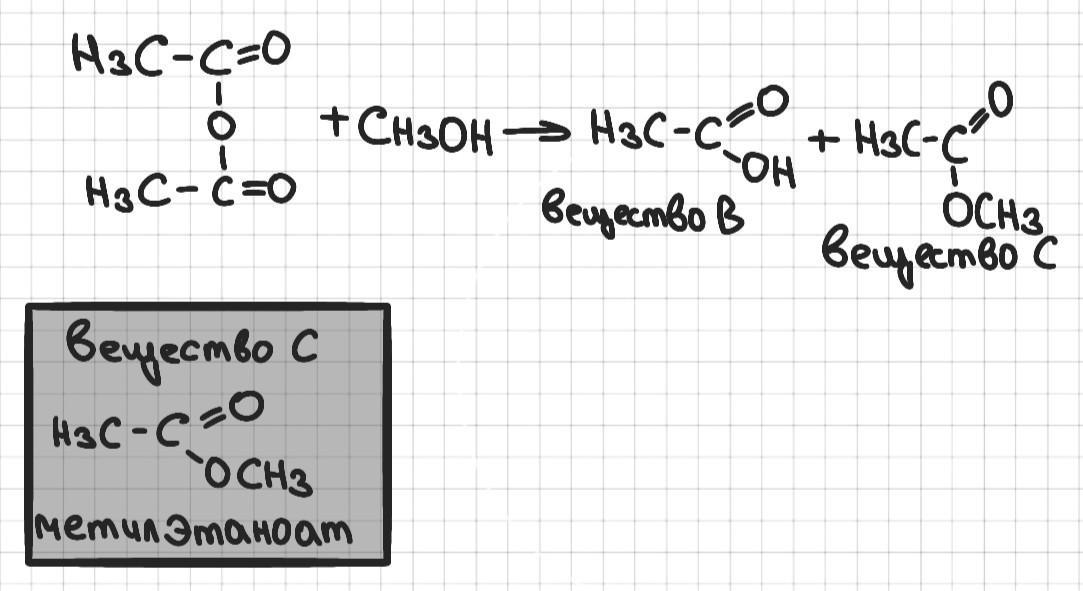 H3C-C=O
O
H3C-C=O
+CH3OH → H3C-C=O
OH
+ H3C-C=O
OCH3
вещество B
вещество C
Вещество C
H3C-C=O
OCH3
метилэтаноат